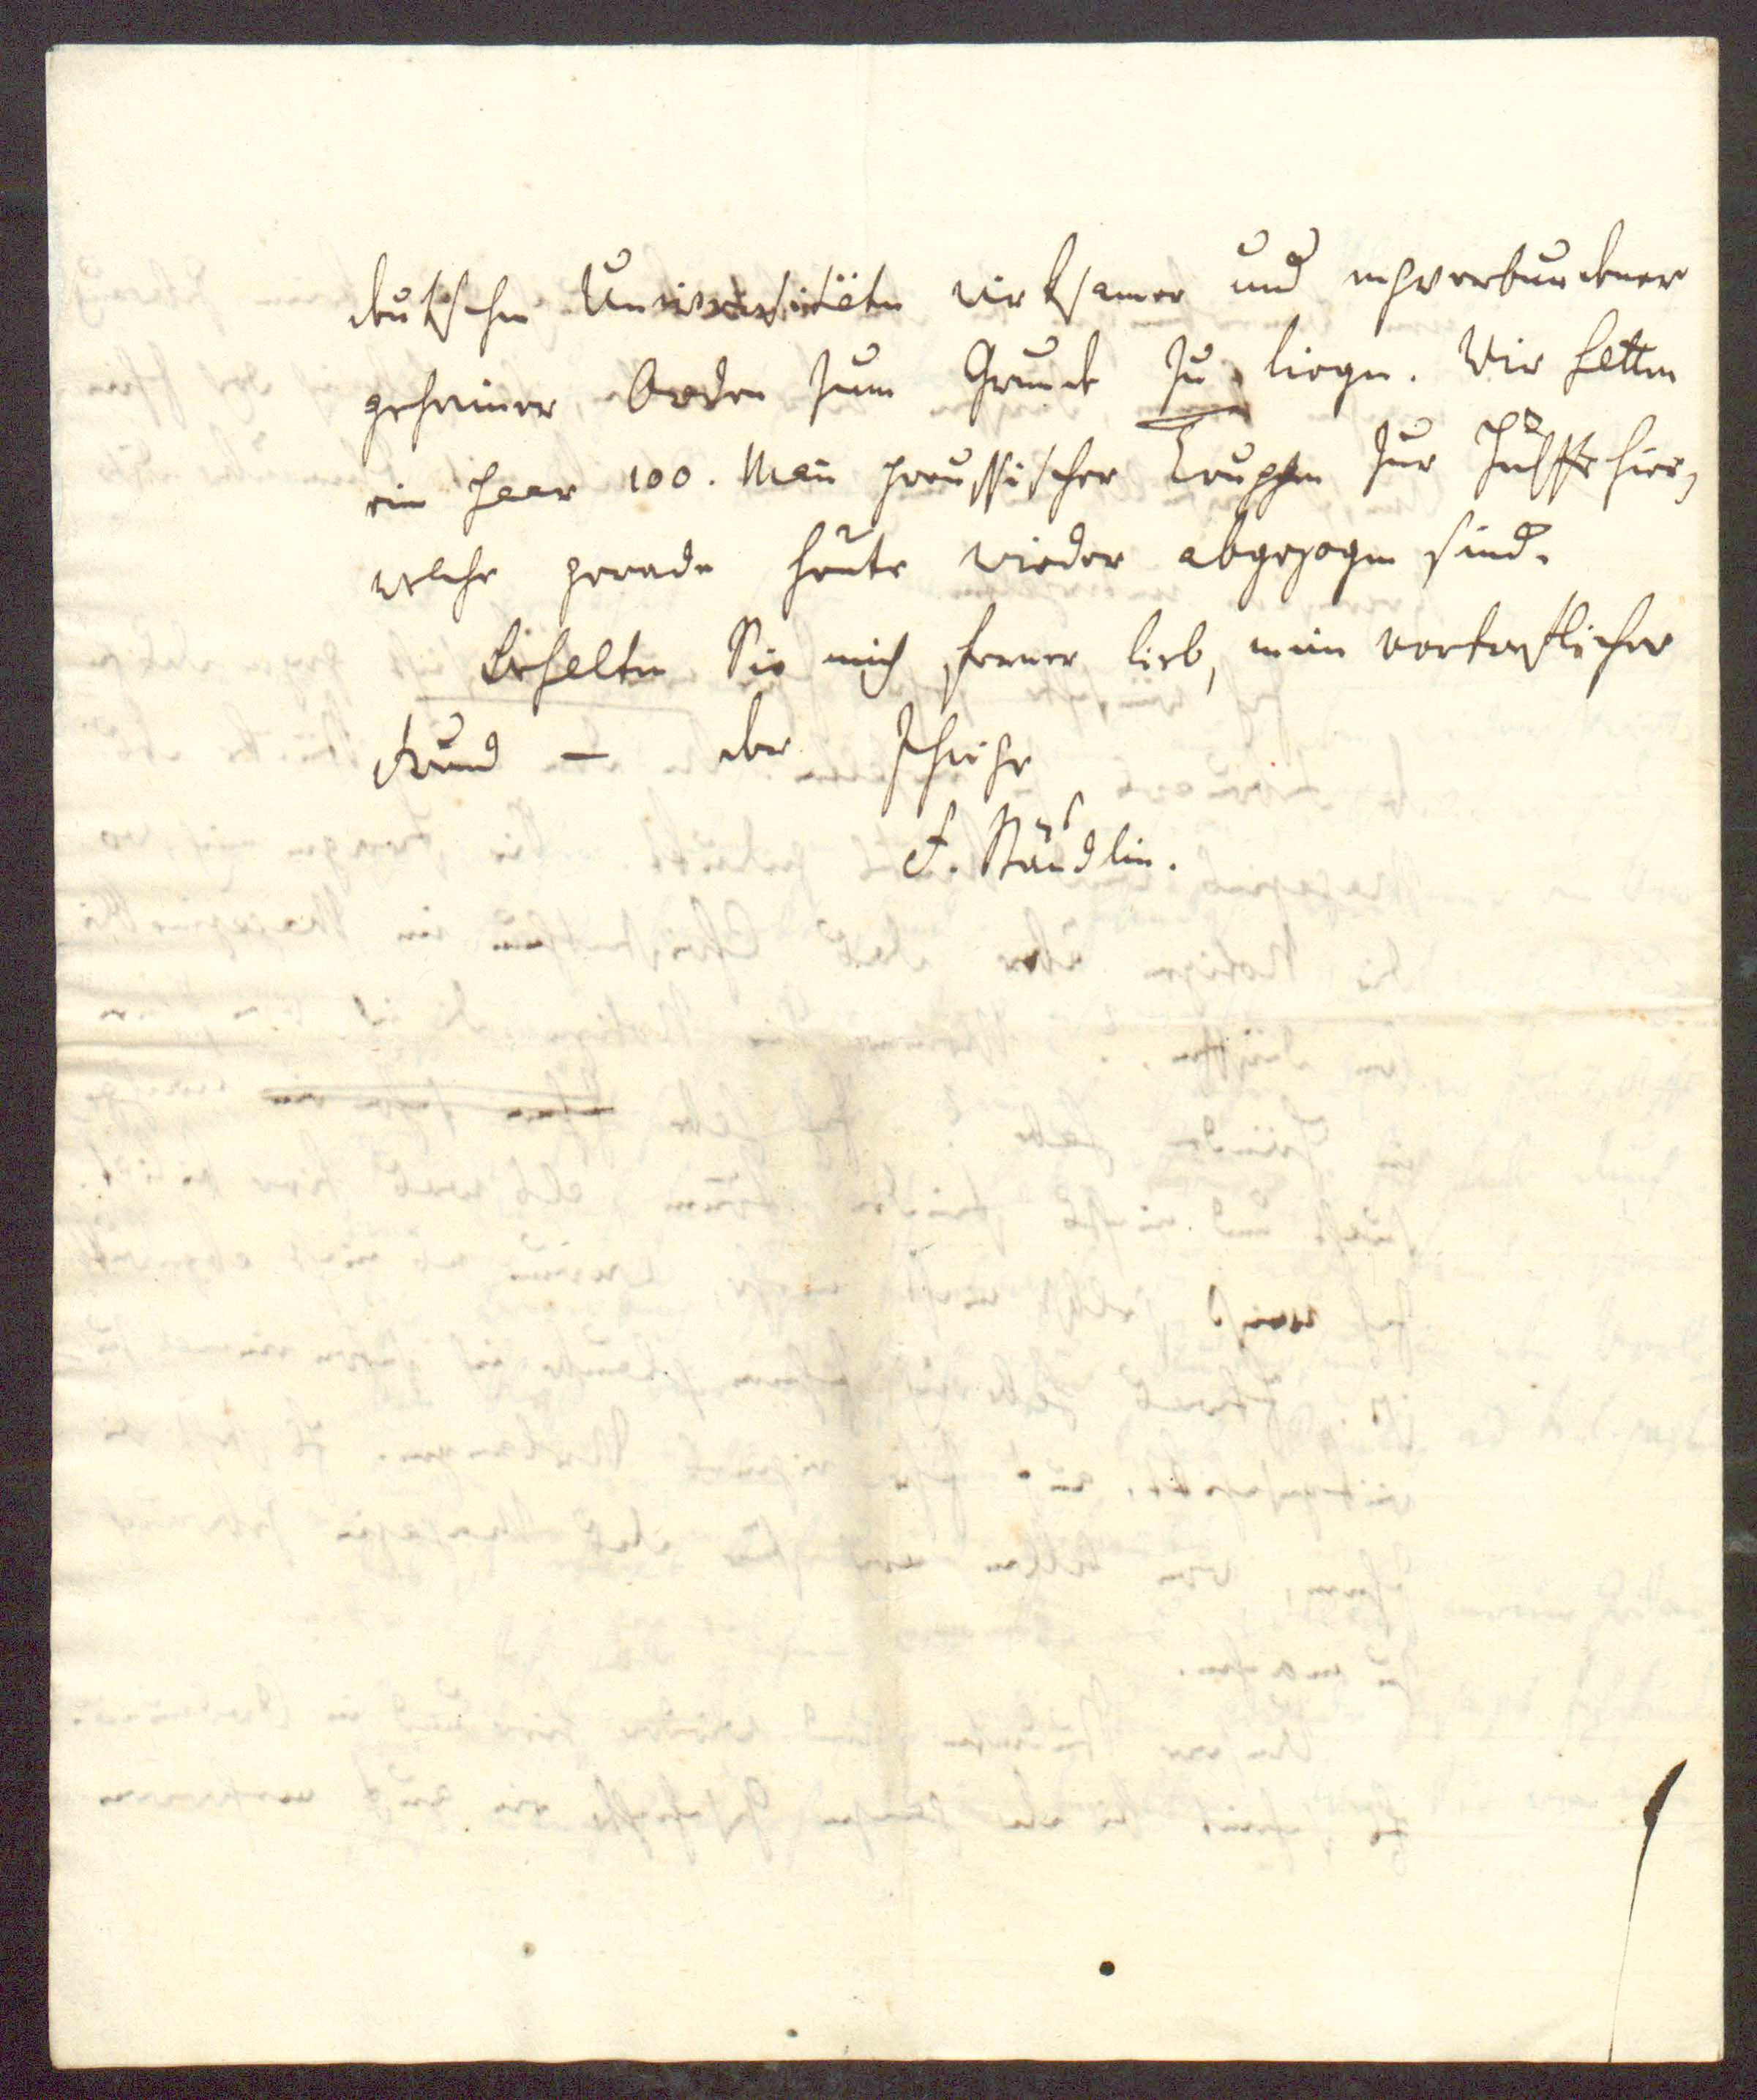 deutschen Universitäten wirksamer und engverbundener
geheimer Orden zum Grunde zu liegen. Wir hatten
ein paar 100. Mañ preussischer Truppen zur Hülffe hier,
welche gerade heute wieder abgezogen sind.
Behalten Sie mich ferner lieb, mein vortreflicher
Freund – der Ihrige
Stäudlin.